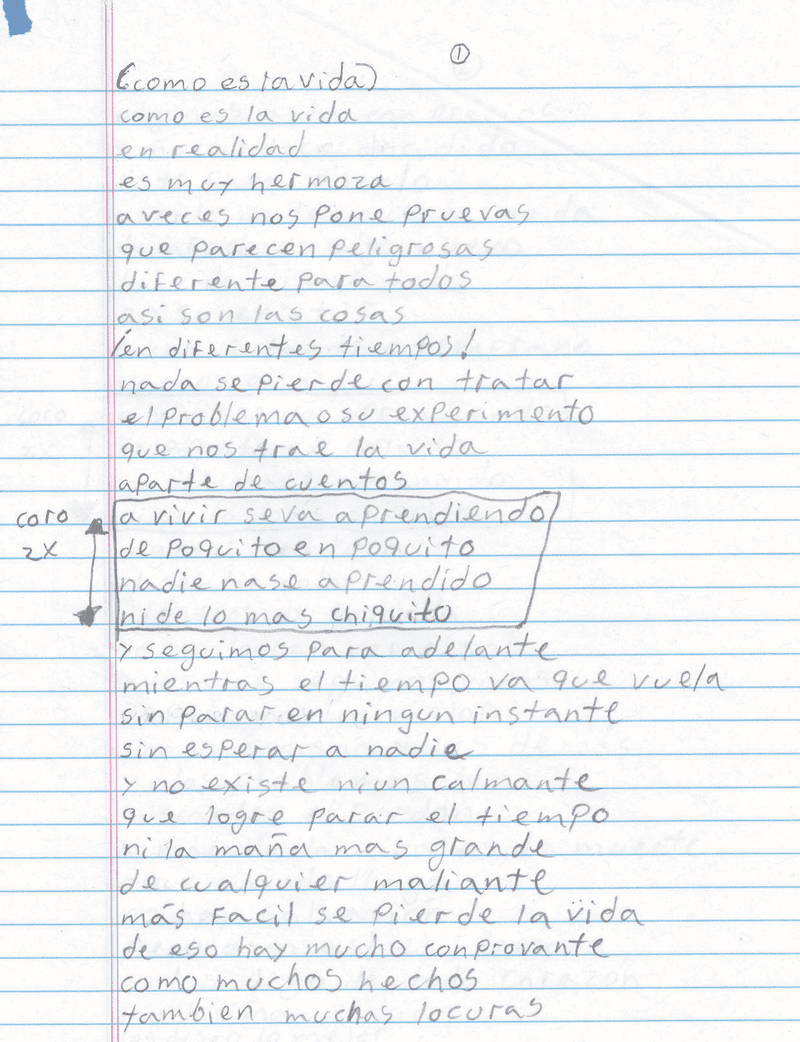 ①
(como es la vida)
como es la vida
en realidad
es muy hermoza
aveces nos pone pruevas
que parecen peligrosas
diferente para todos
asi son las cosas
¡en diferentes tiempos!
nada se pierde con tratar
el problema o su experimento
que nos trae la vida
aparte de cuentos
coro 2x
a vivir seva aprendiendo
de poquito en poquito
nadie nase aprendido
ni de lo mas chiquito
y seguimos para adelante
mientras el tiempo va que vuela
sin parar en ningun instante
sin esperar a nadie
y no existe niun calmante
que logre parar el tiempo
ni la maña mas grande
de cualquier maliante
más facil se pierde la vida
de eso hay mucho conprovante
como muchos hechos
tambien muchas locuras